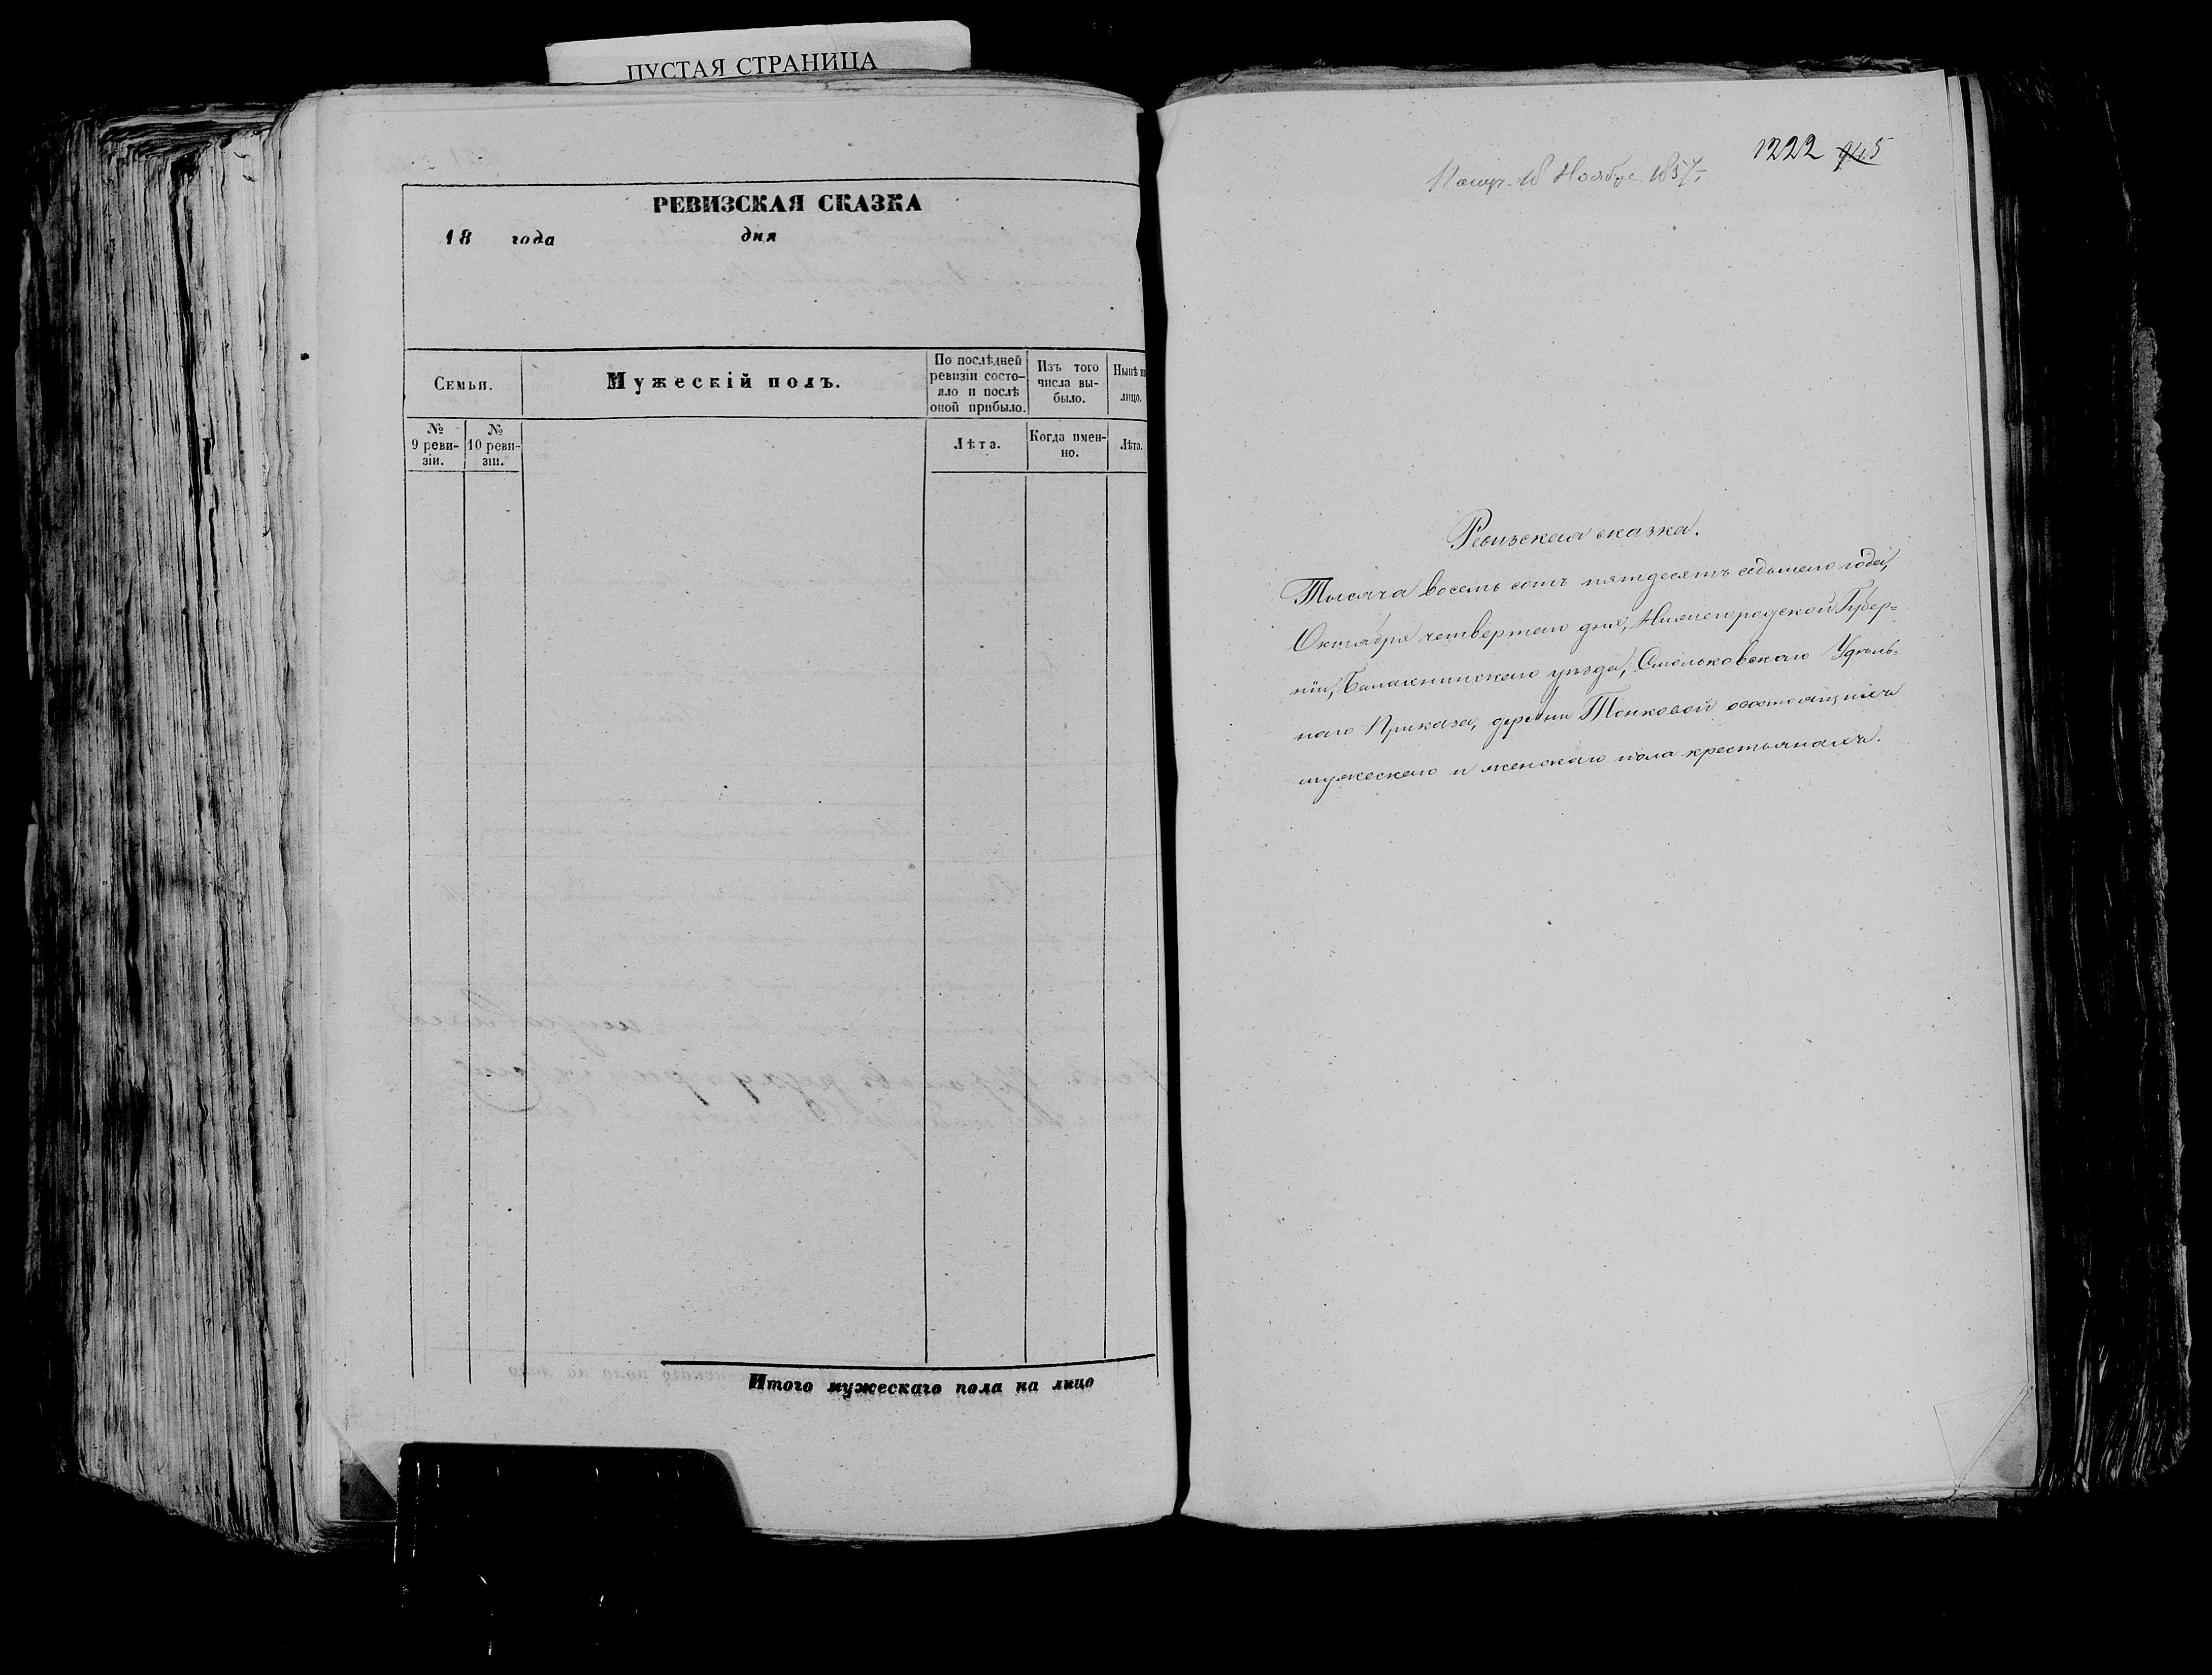 ПУСТАЯ СТРАНИЦА
РЕВИЗСКАЯ СКАЗКА
18 года дня
Семьи.
Мужескій полъ.
По послѣдней
ревизіи состо-
яло и послѣ
оной прибыло.
Изъ того
числа вы-
было.
Нынѣ на
лицо.
№
9 реви-
зіи.
№
10 реви-
зіи.
Лѣта.
Когда имен-
но.
Лѣта.
Итого мужескаго пола на лицо
1222 945
18 Ноября 1857
Ревизская сказка.
Тысяча восемь сотъ пятдесятъ седьмого года,
Октября четвертаго дня, Нижегородской Губер=
ніи, Балахнинскаго уѣзда, Смольковскаго Удѣль=
наго Приказа, деревни Тонковой о состоящихъ
мужескаго и женскаго пола крестьянахъ.